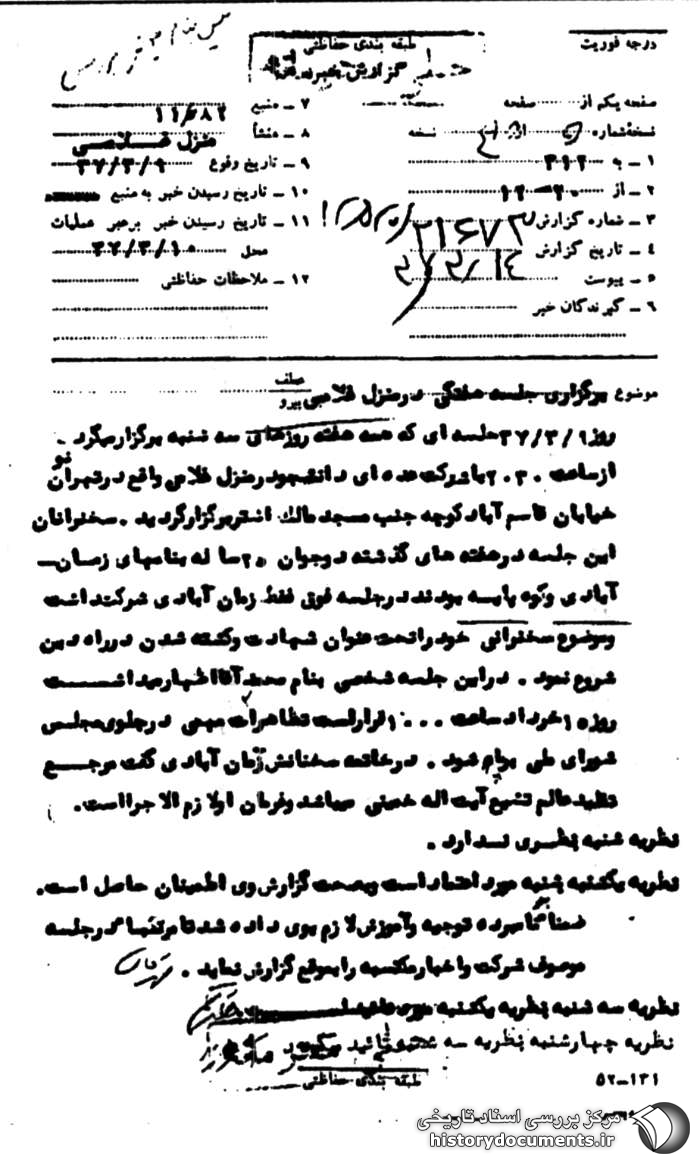 درجه فوریت
طبقه بندی حفاظتی
گزارش خبر
صفحه یکم از صفحه
نسخه شماره از نسخه
۱ ـ به ۳۱۲
۲ ـ از ۲۰-۱۲
۳ ـ شماره گزارش ۲۱۶۷۳
۴ ـ تاریخ گزارش
۵ ـ پیوست
۶ ـ گیرندگان خبر
۷ ـ منبع
۸ ـ منشأ منزل غلامی
۹ ـ تاریخ وقوع ۳۷/۳/۹
۱۰ ـ تاریخ رسیدن خبر به منبع
۱۱ ـ تاریخ رسیدن خبر برهبر عملیات
محل ۳۷/۳/۱۰
۱۲ ـ ملاحظات حفاظتی
موضوع برگزاری جلسه هفتگی در منزل غلامی
عطف
پیرو
روز ۳۷/۳/۹ جلسه ای که همه هفته روزهای سه شنبه برگزار میگردد
از ساعت ۲۰۳۰ با شرکت عده ای دانشجو در منزل غلامی واقع در تهران نو
خیابان قاسم آباد کوچه جنب مسجد مالک اشتر برگزار گردید . سخنرانان
این جلسه در هفته های گذشته دو جوان ۲۵ ساله بنامهای زمان
آبادی و بودند در جلسه فوق فقط زمان آبادی شرکت داشت
و موضوع سخنرانی خود را تحت عنوان شهادت و کشته شدن در راه دین
شروع نمود . در این جلسه شخصی بنام اظهار میداشت
روز ۱۰ خرداد ساعت ۱۰۰۰ قرار است تظاهرات مهمی در جلوی مجلس
شورای ملی برپا شود . در خاتمه سخنانش زمان آبادی گفت مرجع
تقلید عالم تشیع آیت اله خمینی میباشد و فرمان او لازم الاجرا است .
نظریه شنبه نظری ندارد .
نظریه یکشنبه شنبه مورد اعتماد است و بصحت گزارش وی اطمینان حاصل است .
ضمنا به نامبرده توجیه و آموزش لازم بوی داده شد تا مرتبا در جلسه
موصوف شرکت و اخبار مکتسبه را بموقع گزارش نماید .
نظریه سه شنبه نظریه یکشنبه مورد تائید است
نظریه چهارشنبه نظریه سه شنبه تائید میگردد
طبقه بندی حفاظتی
۵۲-۱۳۱
مرکز بررسی اسناد تاریخی
historydocuments.ir